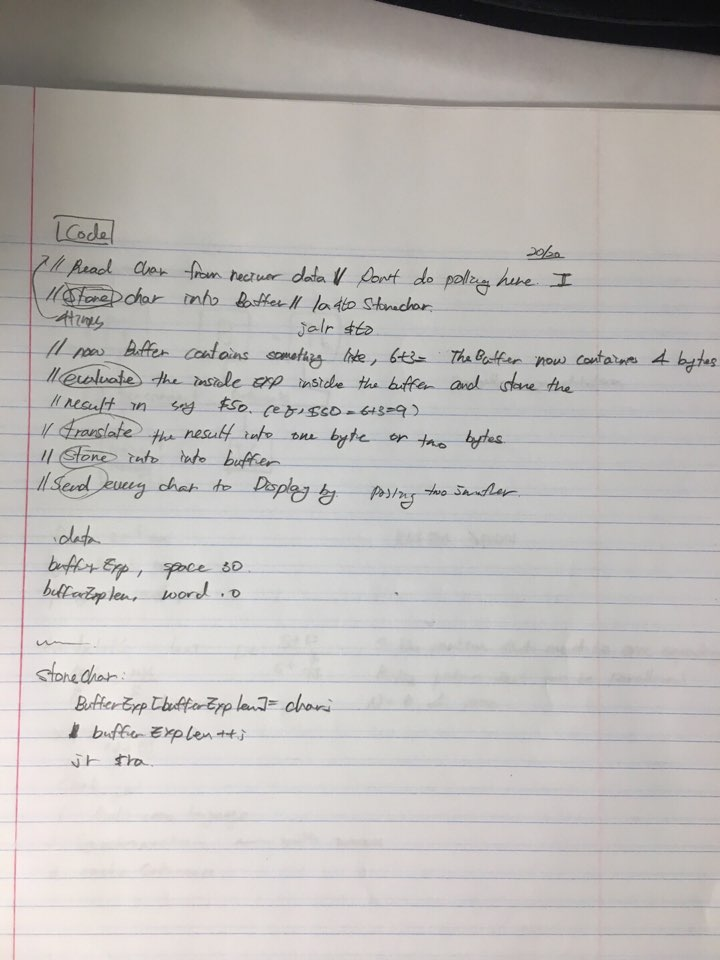 Code
20/20
// Read Char from reciver data // Don't do polling here. I
// Store char into Buffer // la $t0 Storechar.
4times
jalr $t0
// now Buffer contains something like, 6+3= The Buffer now containes 4 bytes
// evaluate the inside exp inside the buffer and store the
// result in say $S0. (e.g, $S0=6+3=9)
// translate the result into one byte or two bytes
// Store into into buffer
// Send every char to Display by Polling two
.data
bufferExp, space 30
bufferExplen, word .0
storeChar:
BufferExp[bufferExplen]= char;
bufferExplen++;
jr $ra.